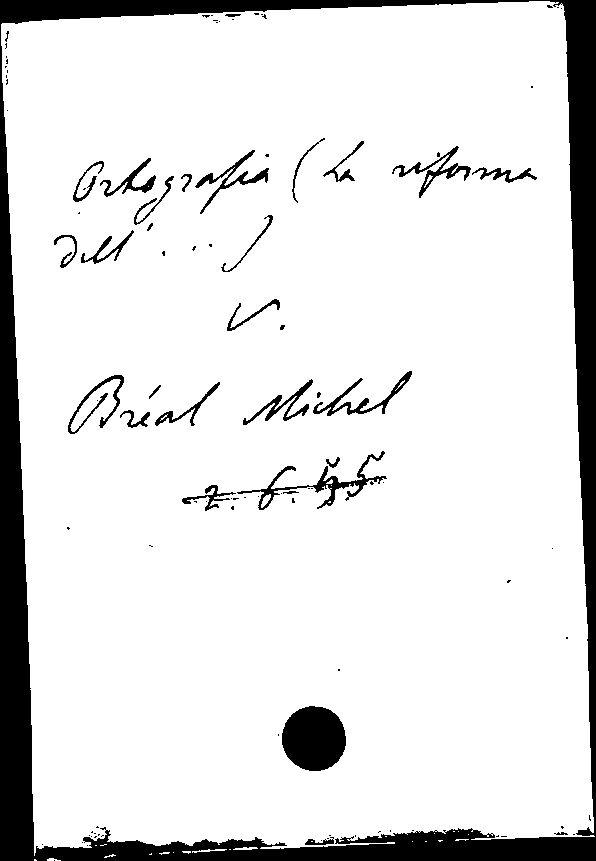 Ortografia (La riforma
dell' ...)
V.
Bréal Michel
2. 6.